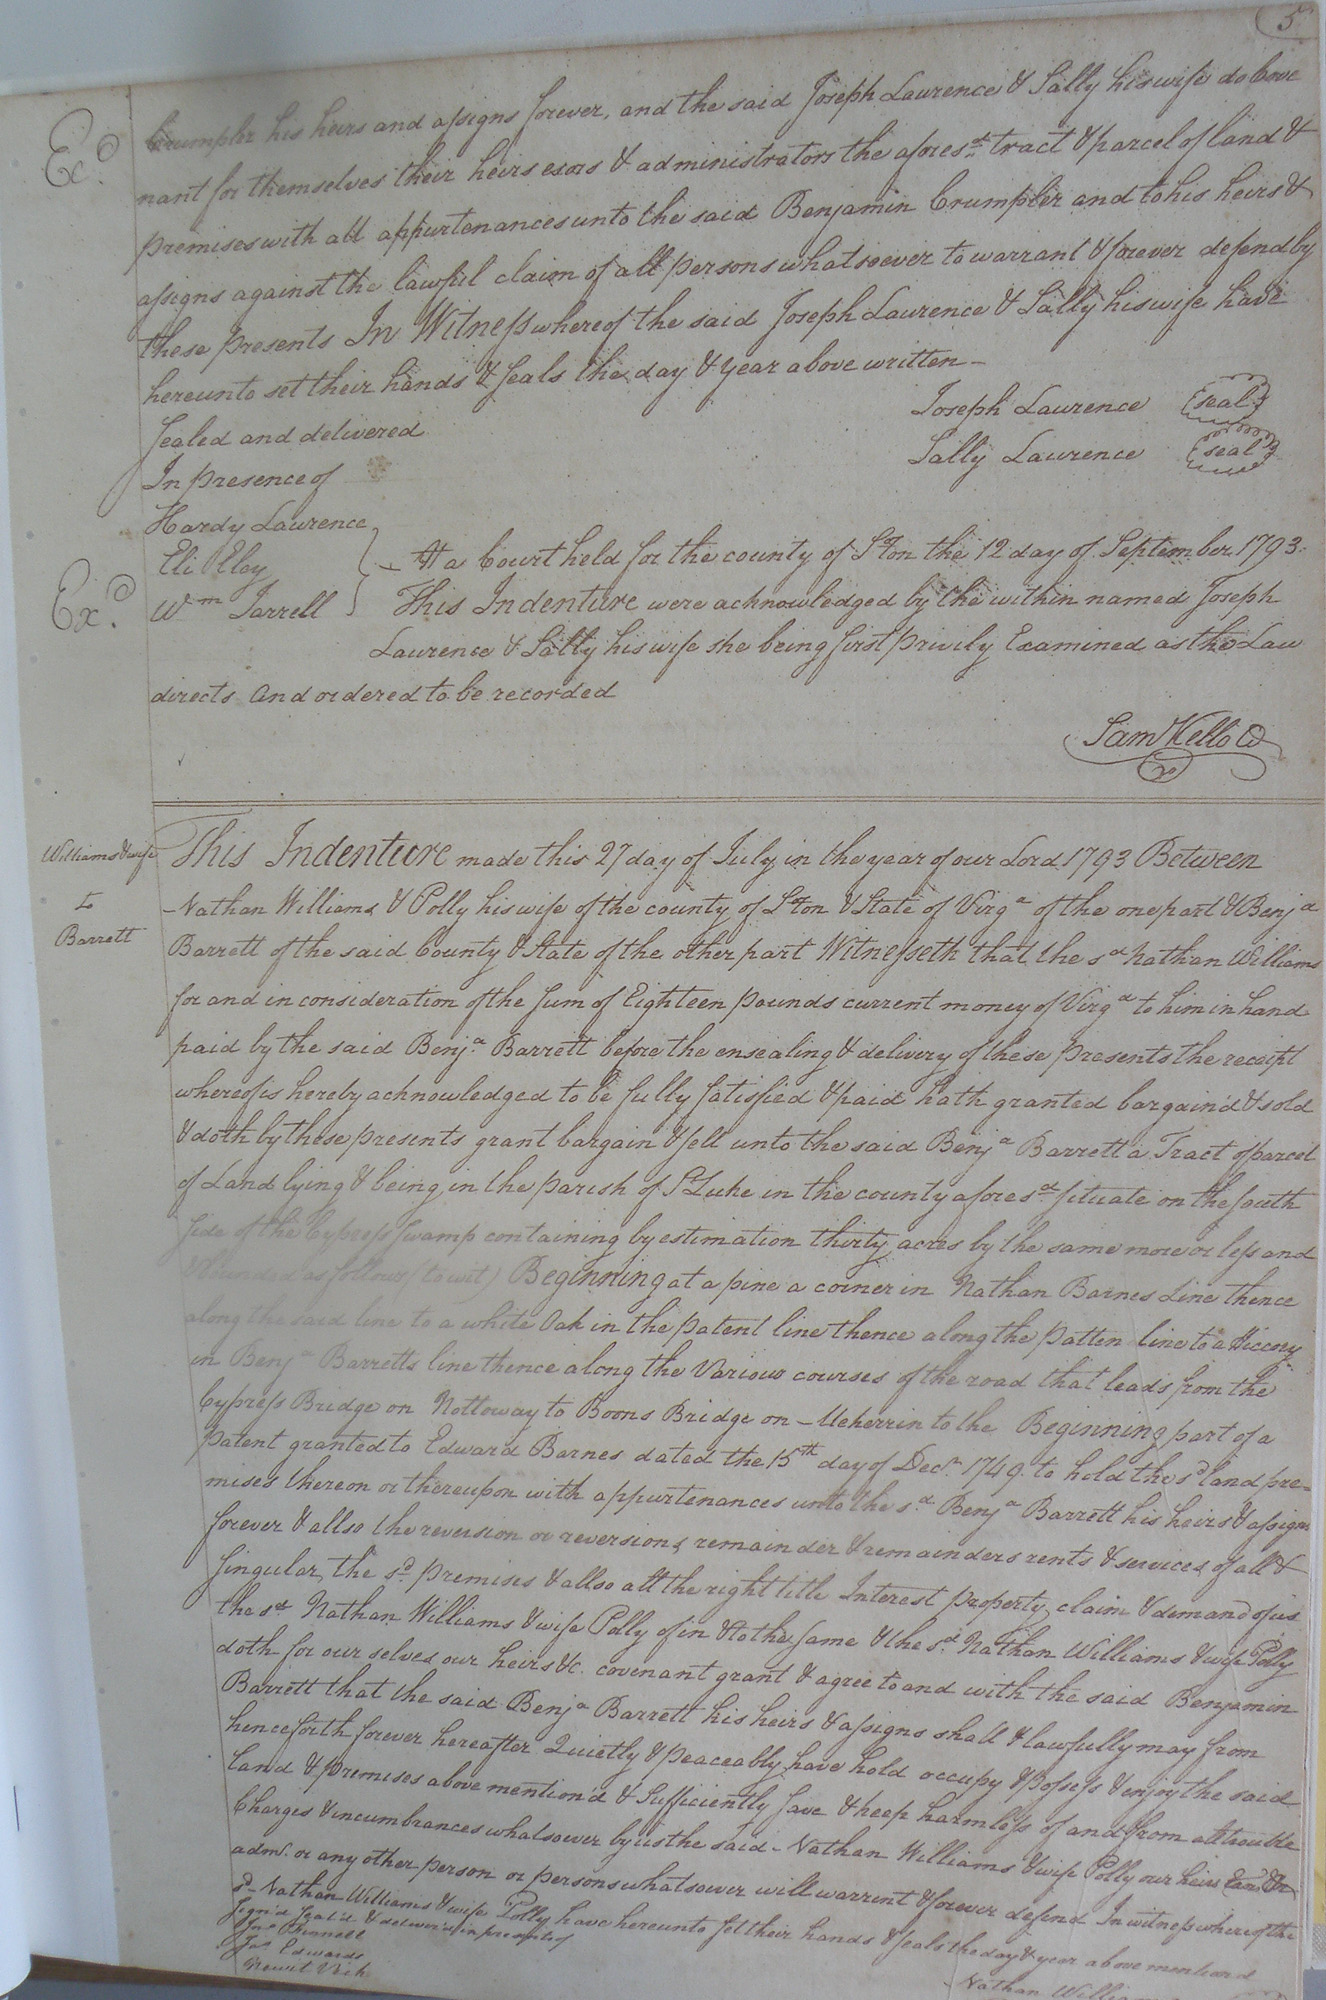 5
Exd.
Crumpler his heirs and assigns forever, and the said Joseph Laurence & Sally his wife do Cove
nant for themselves their heirs exors & administrators the aforesd. tract & parcel of land &
premises with all appurtenances unto the said Benjamin Crumpler and to his heirs &
assigns against the lawful claim of all persons whatsoever to warrant & forever defend by
these presents In Witness whereof the said Joseph Laurence & Sally his wife have
hereunto set their hands & seals the day & year above written —
Joseph Laurence (seal)
Sealed and delivered
Sally Laurence (seal)
In presence of
Hardy Laurence
Eli Eley
At a Court held for the county of Sºton the 12 day of September 1793.
Exd.
Wm Jarrell
This Indenture were acknowledged by the within named Joseph
Laurence & Sally his wife she being first privily Examined as the Law
directs and ordered to be recorded
Sam Kello CC
Williams & wife
to
Barrett
This Indenture made this 27 day of July in the year of our Lord 1793 Between
Nathan Williams & Polly his wife of the county of Sºton & State of Virga of the one part & Benja
Barrett of the said County & State of the other part Witnesseth that the sd Nathan Williams
for and in consideration of the sum of Eighteen pounds current money of Virga to him in hand
paid by the said Benja. Barrett before the ensealing & delivery of these presents the receipt
whereof is hereby acknowledged to be fully satisfied & paid hath granted bargain'd & sold
& doth by these presents grant bargain & sell unto the said Benja Barrett a Tract of parcel
of Land lying & being in the parish of St Luke in the county aforesd. situate on the south
side of the Cypress swamp containing by estimation thirty acres by the same more or less and
bounded as follows (towit) Beginning at a pine a corner in Nathan Barnes Line thence
along the said line to a white Oak in the patent line thence along the patten line to a Hiccory
in Benja Barretts line thence along the Various courses of the road that leads from the
Cypress Bridge on Nottoway to Boons Bridge on Meherrin to the Beginning part of a
patent granted to Edward Barnes dated the 15th day of Decr. 1749. to hold the sd land pre=
mises thereon or thereupon with appurtenances unto the sd. Benja Barrett his heirs & assigns
forever & allso the reversion or reversions remainder & remainders rents & services of all &
singular the sd. premises & allso all the right title Interest property claim & demand of us
the sd. Nathan Williams & wife Polly of in & to the same & the sd. Nathan Williams & wife Polly
doth for our selves our heirs &c. covenant grant & agree to and with the said Benjamin
Barrett that the said Benja Barrett his heirs & assigns shall & lawfully may from
henceforth forever hereafter Quietly & peaceably have hold occupy & possess & enjoy the said
land & premises above mention'd & sufficiently save & keep harmless of and from all trouble
Charges & incumbrances whatsoever by us the said Nathan Williams & wife Polly our heirs
adms. or any other person or persons whatsoever will warrent & forever defend In witness whereof the
sd. Nathan Williams & wife Polly have hereunto set their hands & seals the day & year above mentiond
Sign'd seal'd & deliver'd in presents of
Edwards
Newit Vick
Nathan Williams